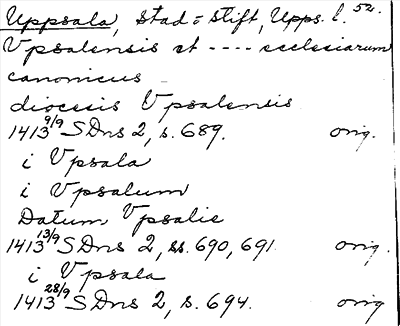 Uppsala, stad o stift, Upps. l. 52.
Vpsalensis et ---- ecclesiarum
canonicus
diocesis Vpsalensis
1413 9/9 SDns 2, s. 689. orig.
i Vpsala
i Vpsalum
Datum Vpsalie
1413 13/9 SDns 2, ss. 690, 691. orig.
i Vpsala
1413 28/9 SDns 2, s. 694. orig